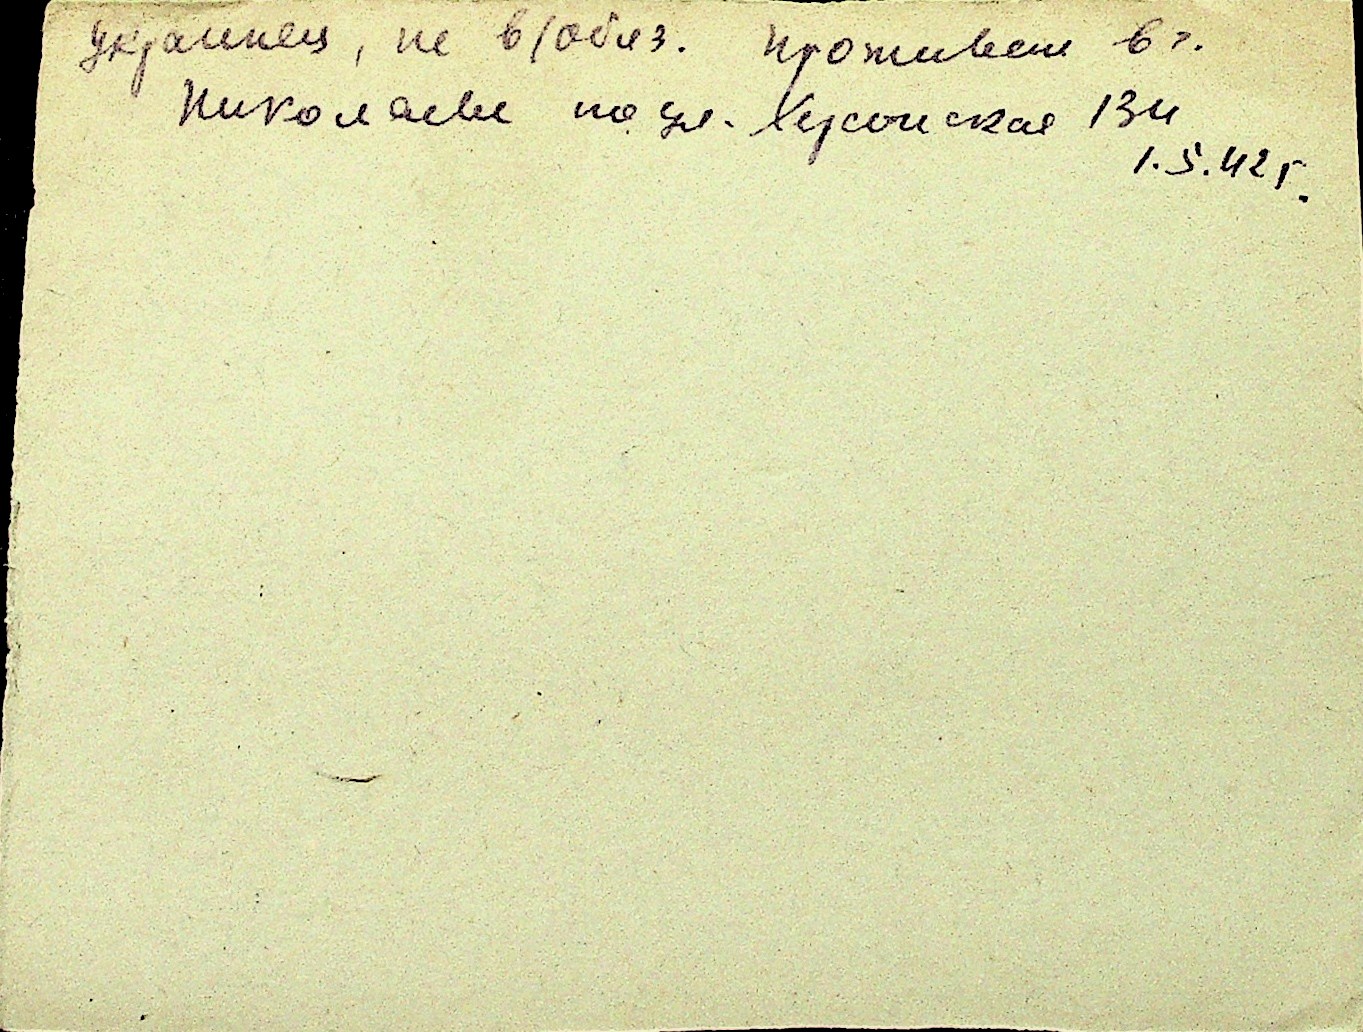 украинец, не в/обяз. проживает в г.
Николаеве по ул. Херсонская 134
1.5.42 г.